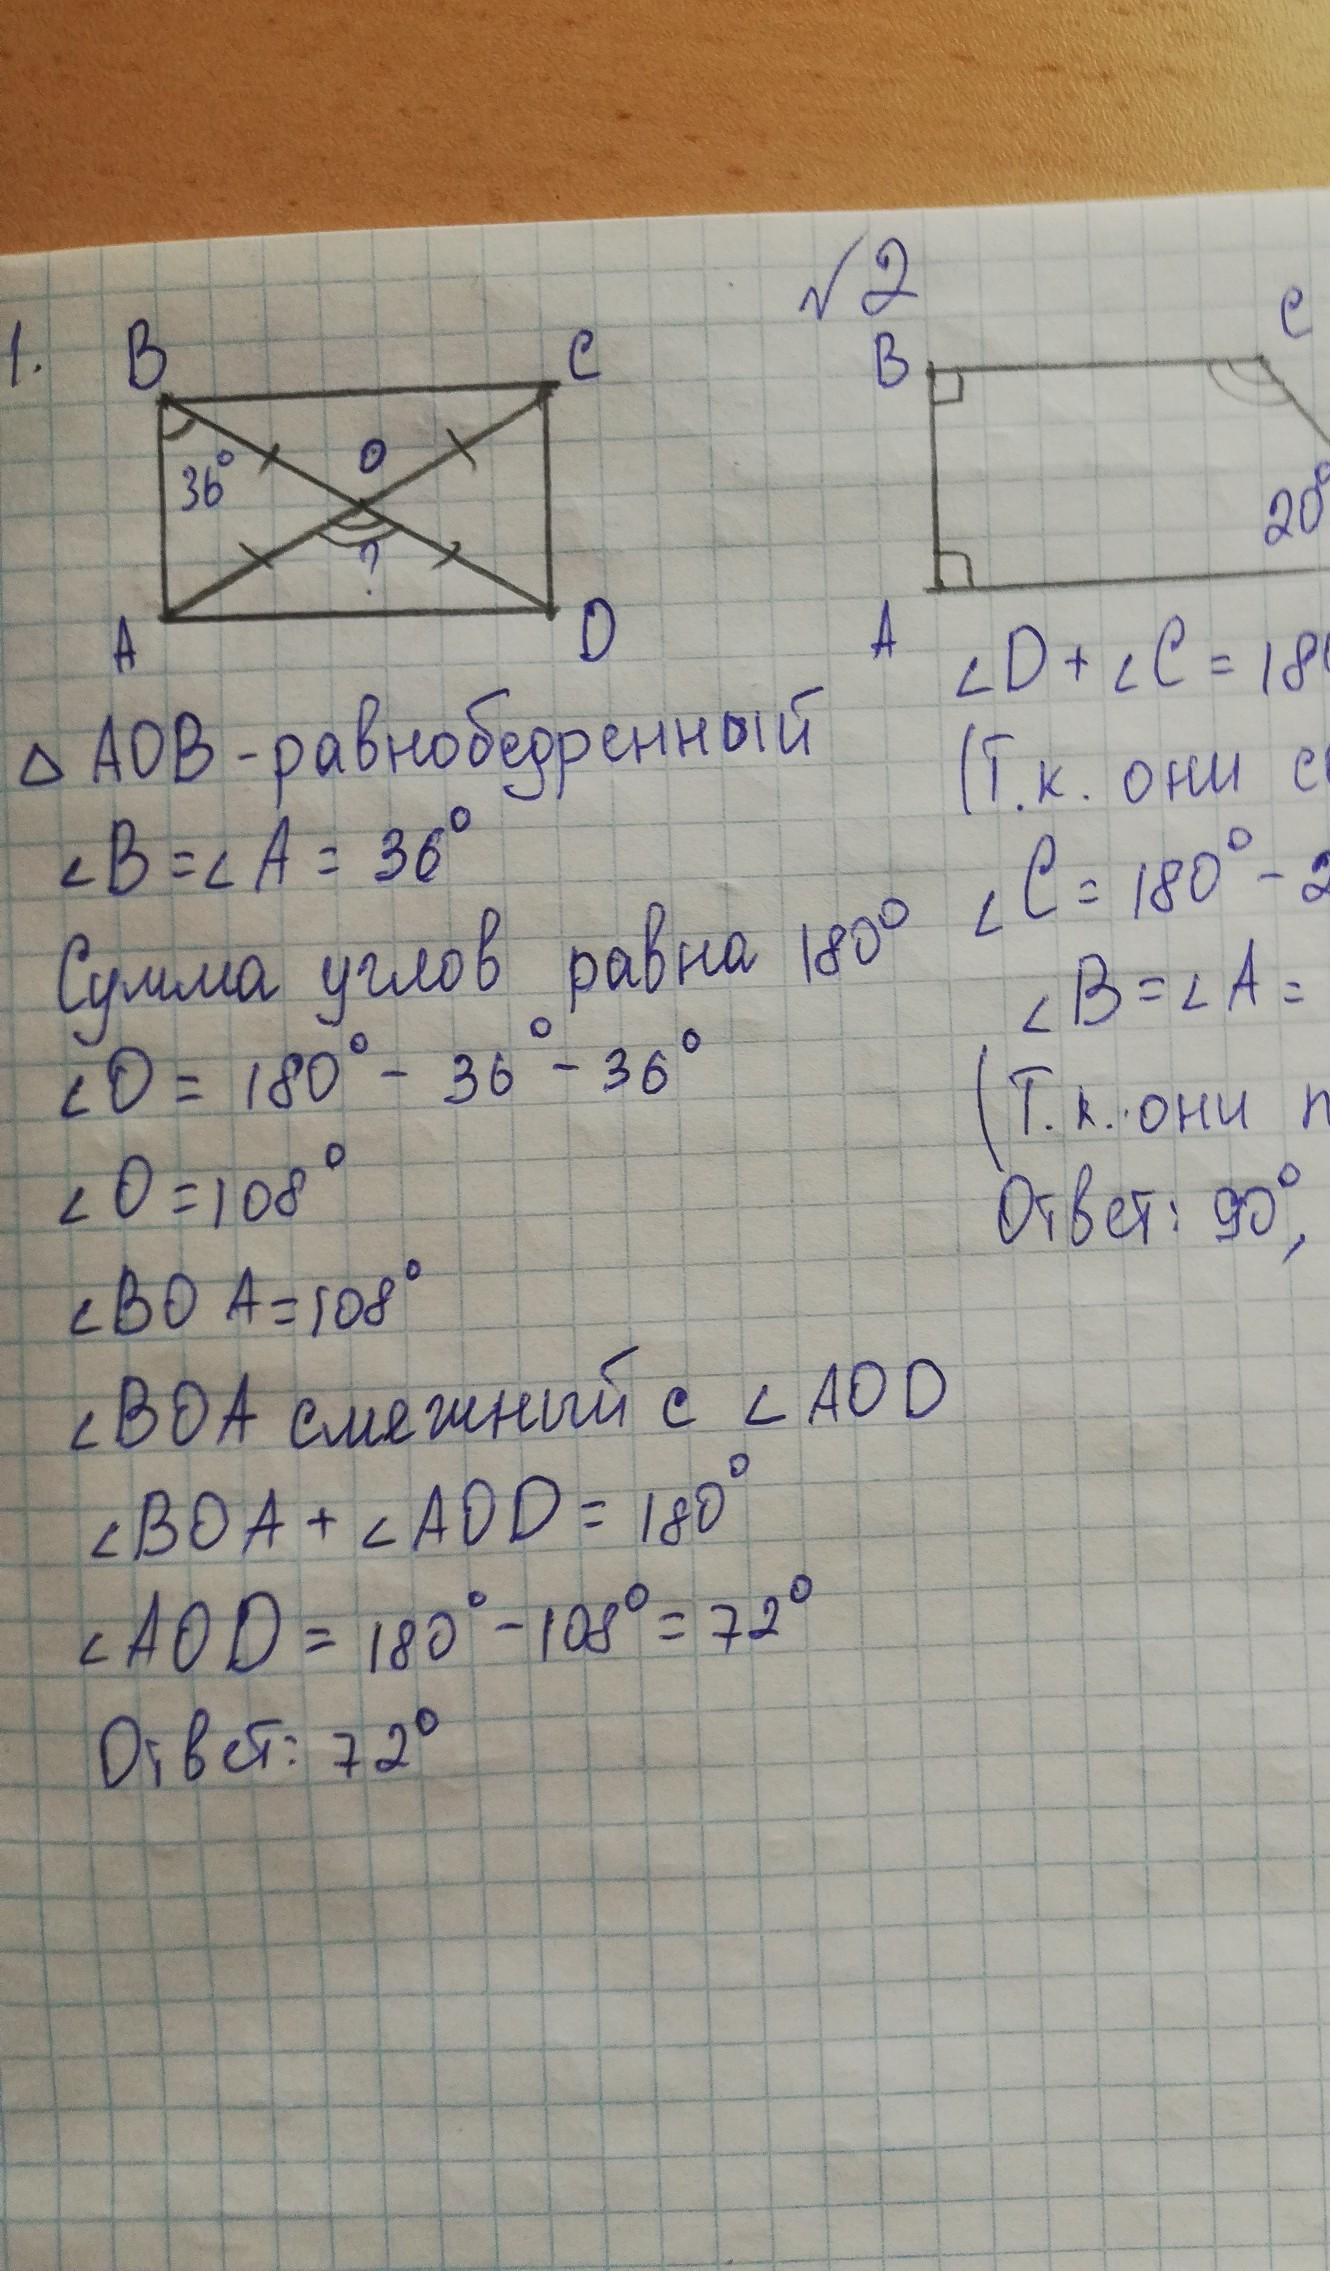 1.
B
C
36°
O
?
A
D
△ AOB - равнобедренный
∠B = ∠A = 36°
Сумма углов равна 180°
∠O = 180° - 36° - 36°
∠O = 108°
∠BOA = 108°
∠BOA смежный с ∠AOD
∠BOA + ∠AOD = 180°
∠AOD = 180° - 108° = 72°
Ответ: 72°
√2
B
C
20°
A
∠D + ∠C = 18
(Т.к. они
∠C = 180° - 2
∠B = ∠A =
(Т.к. они
Ответ: 90°,